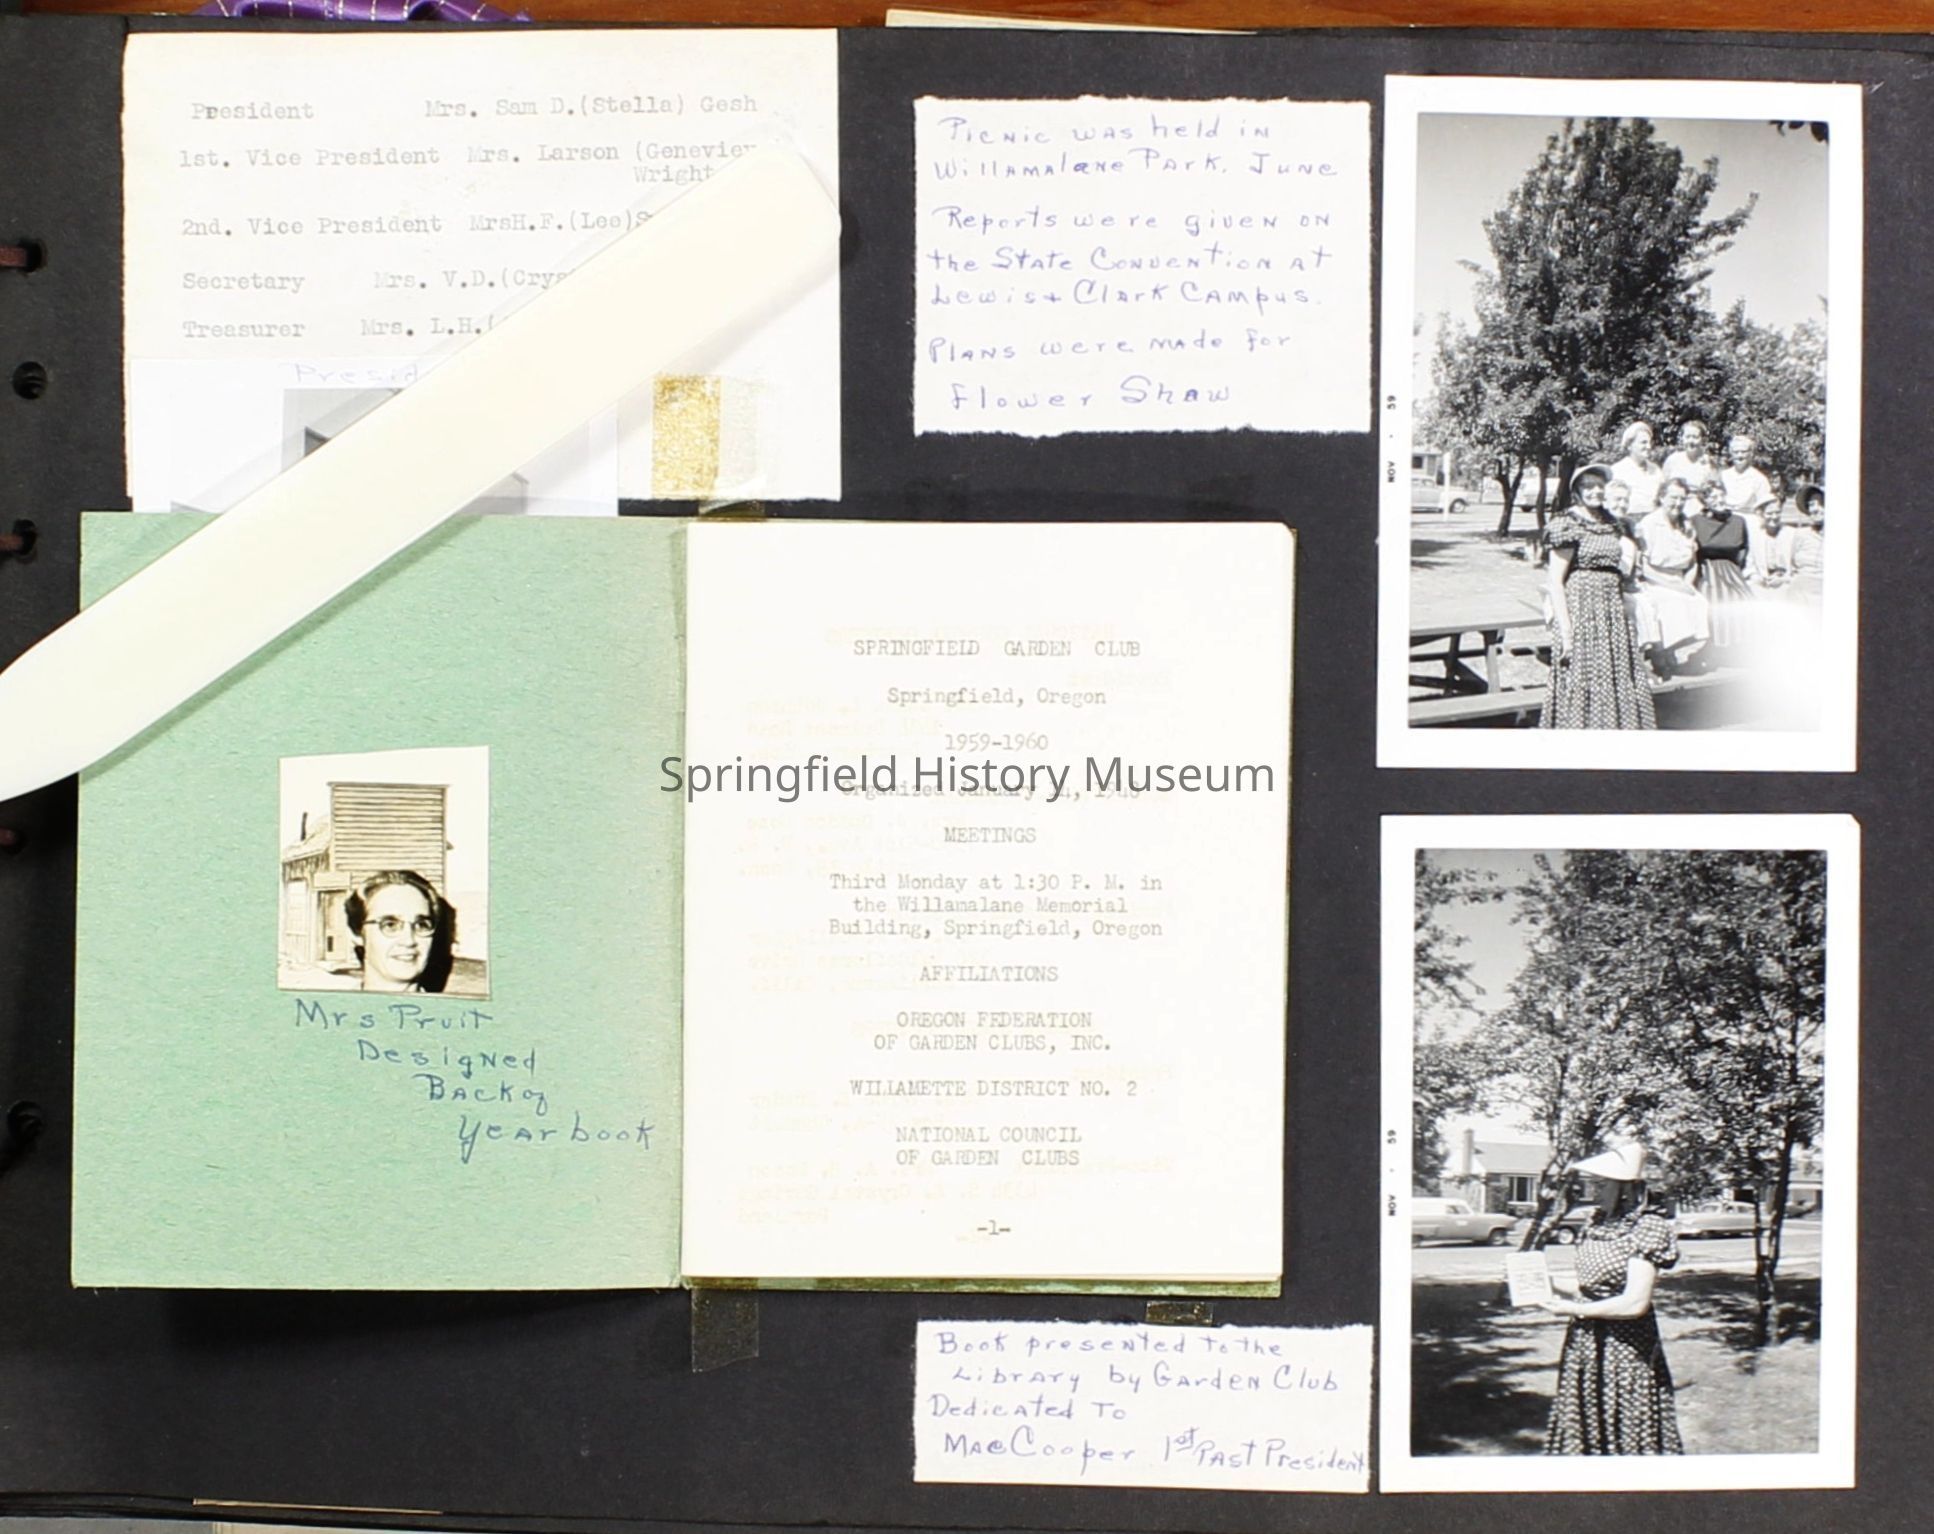 President Mrs. Sam D.(Stella) Gesh
1st. Vice President Mrs. Larson (Geneviev
Wright
2nd. Vice President MrsH.F.(Lee)S
Secretary Mrs. V.D.(Crys
Treasurer Mrs. L.H.(
Presid
Picnic was held in
Willamalane Park. June
Reports were given on
the State Convention at
Lewis + Clark Campus.
Plans were made for
Flower Shaw
NOV • 59
Mrs Pruit
Designed
Back of
Yearbook
SPRINGFIELD GARDEN CLUB
Springfield, Oregon
1959-1960
Springfield History Museum
Organized January 14, 1948
MEETINGS
Third Monday at 1:30 P. M. in
the Willamalane Memorial
Building, Springfield, Oregon
AFFILIATIONS
OREGON FEDERATION
OF GARDEN CLUBS, INC.
WILLAMETTE DISTRICT NO. 2
NATIONAL COUNCIL
OF GARDEN CLUBS
-1-
NOV • 59
Book presented to the
Library by Garden Club
Dedicated To
Mae Cooper 1st Past President